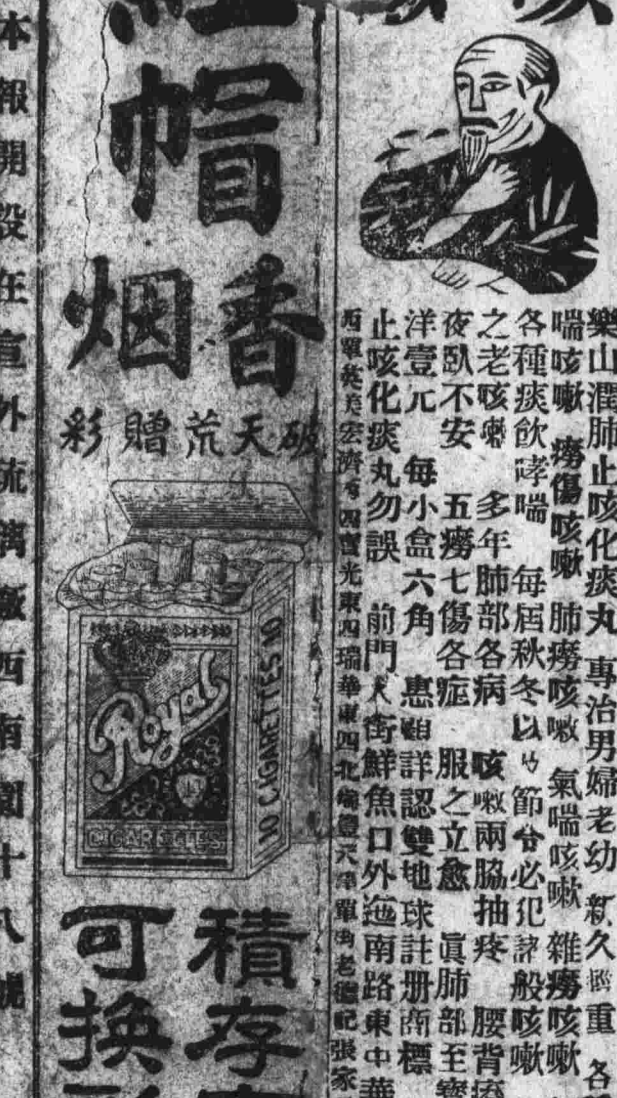 樂山潤肺止咳化痰丸 專治男婦老幼 新久輕重 各
喘咳嗽 癆傷咳嗽 肺癆咳嗽 氣喘咳嗽 雜癆咳嗽
各種痰飲哮喘 每屆秋冬以及節令必犯諸般咳嗽
之老咳嗽 多年肺部各病 咳嗽兩脇抽疼 腰背
夜臥不安 五癆七傷各症 服之立愈 眞肺部至寶
洋壹元 每小盒六角 惠顧詳認雙地球註册商標
止咳化痰丸勿誤 前門大街鮮魚口外迤南路東中華
西單英美宏濟 光東四瑞華東四北 老德記張家
帽
香烟
破天荒贈彩
Royal
CIGARETTES
10 CIGARETTES 10
積存
可換
本報開設在宣外琉璃廠西南園十八號